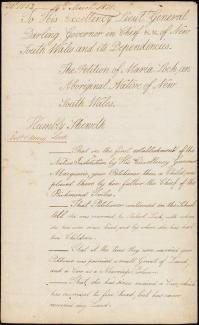 To His Excellency Lieut. General
Darling Governor in Chief &c. of New
South Wales and its Dependencies.
The Petition of Maria Lock, an
Aboriginal Native of New
South Wales.
Humbly Sheweth
That on the first establishment of the
Native Institution by His Excellency Governor
Macquarie, your Petitioner then a Child was
placed there by her father the Chief of the
Richmond Tribes.
That Petitioner continued in the School
till she was married to Robert Lock, with whom
she has ever since lived and by whom she has had
two Children.
That at the time they were married your
Petitioner was promised a small Grant of Land
and a Cow as a Marriage Portion.
That she has since received a Cow, which
has increased to five head, but has never
received any Land.